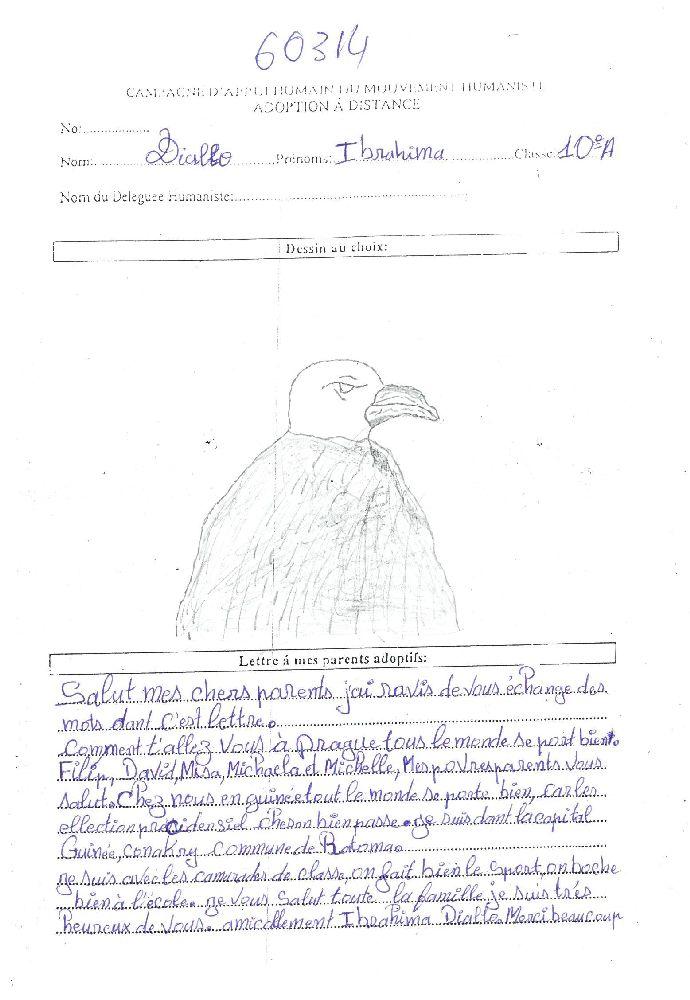 60314
CAMPAGNE D'APPUI HUMAIN DU MOUVEMENT HUMANISTE
ADOPTION À DISTANCE
No:...................
Nom: Diallo Prénoms: Ibrahima Classe: 10ºA
Nom du Deleguée Humaniste:
Dessin au choix:
Lettre á mes parents adoptifs:
Salut mes chers parents j'ai ravis de vous échange des
mots dant c'est lettre.
Comment t'allez vous à prague tous le monde se port bien.
Filip, David, Misa, Michaela et Michelle, Mes povres parents vous
salut. Chez nous en guinée tout le monde se porte bien, car les
ellection precidensiel bien passe. je suis dant la capital
Guinée, conakry commune de Ratoma.
je suis avec les camirades de classe, on fait bien le sport, on boche
bien à l'école. je vous salut toute la famille je suis trés
heureux de vous. amicallement Ibrahima Diallo. Merci beaucoup